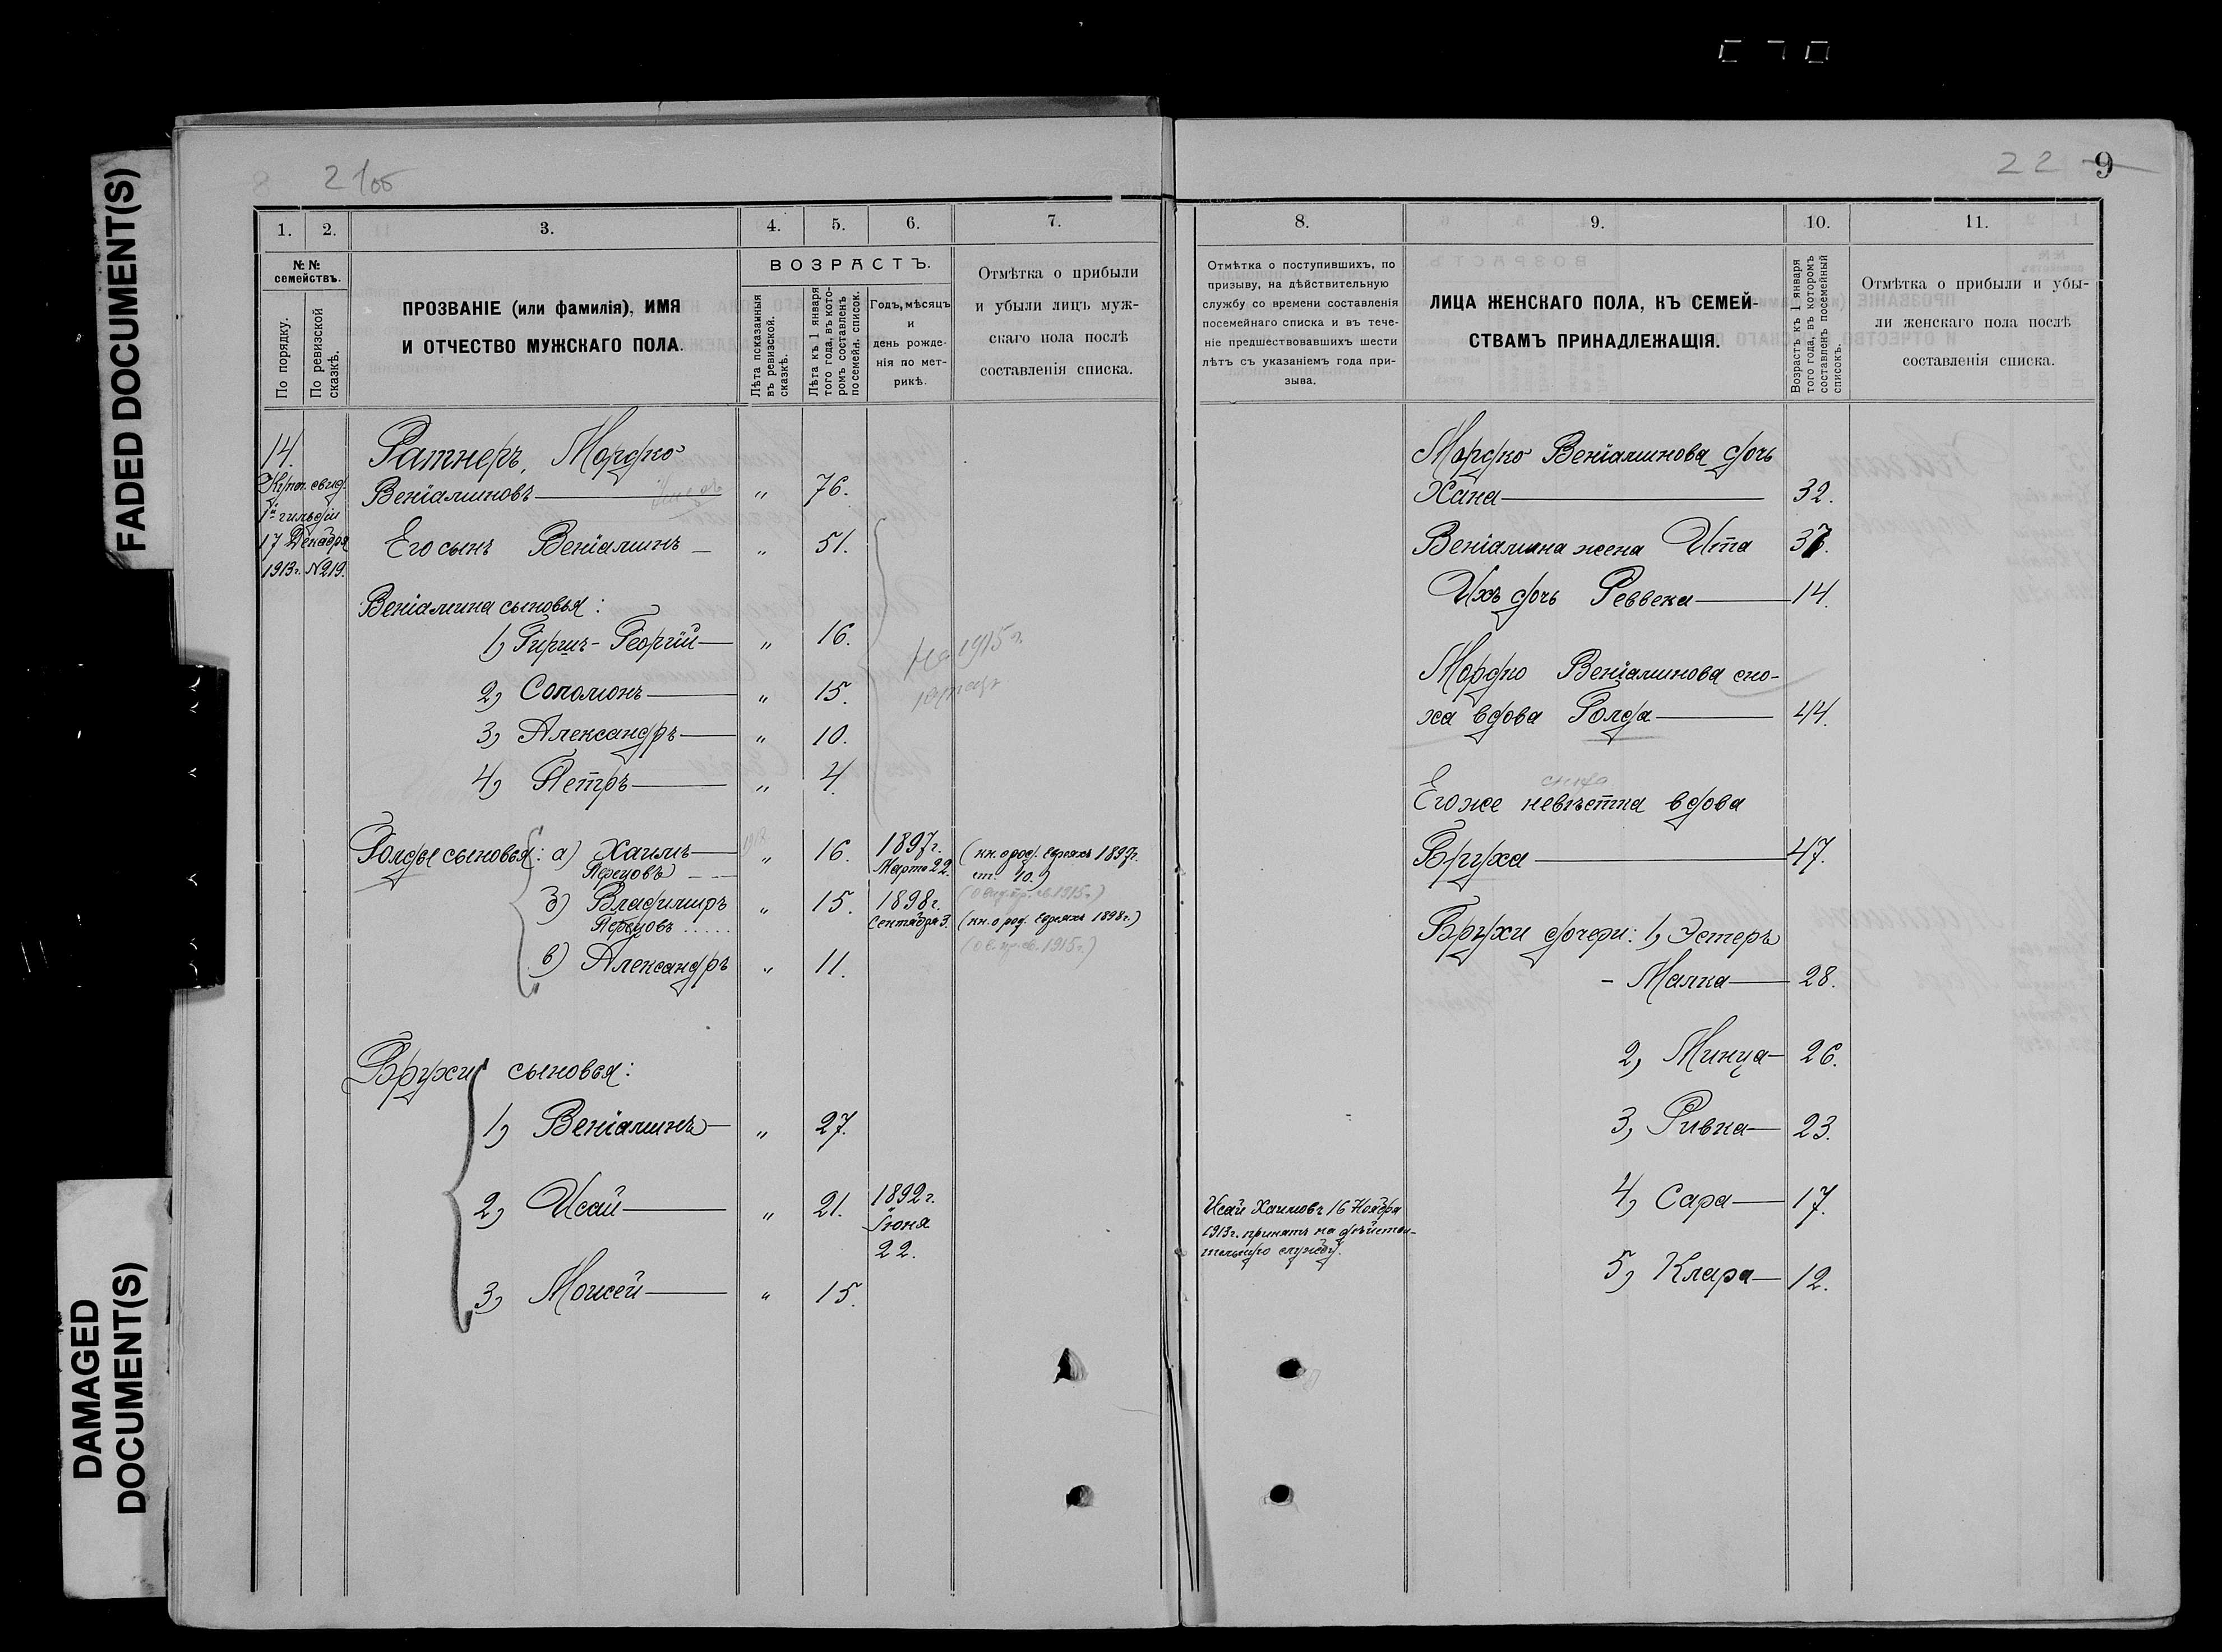 FADED DOCUMENT(S)
DAMAGED
DOCUMENT(S)
22 9
1. 2. 3. 4. 5. 6. 7.
№ №
семействъ.
По порядку.
По ревизской
сказкѣ.
ПРОЗВАНІЕ (или фамилія), ИМЯ
И ОТЧЕСТВО МУЖСКАГО ПОЛА.
ВОЗРАСТЪ.
Лѣта показанныя
въ ревизской.
сказкѣ.
Лѣта къ 1 января
того года, въ кото-
ромъ составленъ
посемейн. список.
Годъ, мѣсяцъ
и
день рожде-
нія по мет-
рикѣ.
Отмѣтка о прибыли
и убыли лицъ муж-
скаго пола послѣ
составленія списка.
14.
Купеч. свид.
1й гильдіи
17 Декабря
1913г. №219.
Ратнеръ, Мордко
Веніаминовъ — " 76.
Его сынъ Веніаминъ — " 51.
Веніамина сыновья:
1, Гиршъ-Георгій — " 16.
2, Соломонъ — " 15.
3, Александръ — " 10.
4, Петръ — " 4.
На 1915 г.
Голды сыновья: а) Хаимъ — " 16. 1897г. (кн. о род. евреяхъ 1897г.
Перецовъ Марта 22. ст. 10.)
б) Владимиръ " 15. 1898г.
Перецовъ ..... Сентября 3. (кн. о род. евреяхъ 1898г.)
в) Александръ " 11.
Брухи сыновья:
1, Веніаминъ — " 27.
2, Исай — " 21. 1892г.
Іюня
22.
3, Моисей — " 15.
8. 9. 10. 11.
Отмѣтка о поступившихъ, по
призыву, на дѣйствительную
службу со времени составленія
посемейнаго списка и въ тече-
ніе предшествовавшихъ шести
лѣтъ съ указаніемъ года при-
зыва.
ЛИЦА ЖЕНСКАГО ПОЛА, КЪ СЕМЕЙ-
СТВАМЪ ПРИНАДЛЕЖАЩІЯ.
Возрастъ къ 1 января
того года, въ которомъ
составленъ посемейный
списокъ.
Отмѣтка о прибыли и убы-
ли женскаго пола послѣ
составленія списка.
Мордко Веніаминова дочь
Хана — 32.
Веніамина жена Ита 37.
Ихъ дочь Реввека — 14.
Мордко Веніаминова сно-
ха вдова Голда — 44.
Его же невѣстка вдова
Бруха — 47.
Брухи дочери: 1, Эстеръ
- Малка — 28.
2, Минца — 26.
3, Ривка — 23.
4, Сара — 17.
5, Клара — 12.
Исай Хаимовъ 16 Ноября
1913г. принятъ на дѣйстви-
тельную службу.